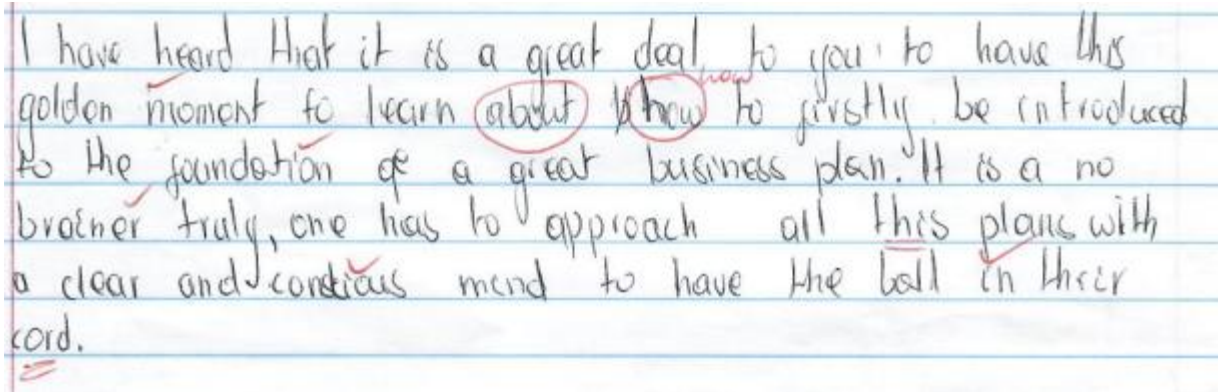 I have heard that it is a great deal to you to have this
golden moment to learn about how how to firstly be introduced
to the foundation of a great business plan. It is a no
brainer truly, one has to approach all this plans with
a clear and conscious mind to have the ball in their
cord.